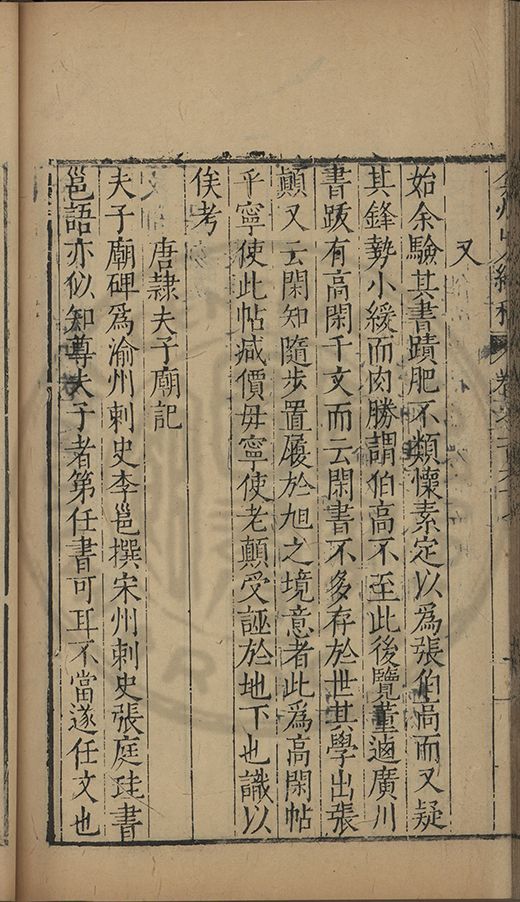 又
始余驗其書蹟肥不類懷素定以為張伯高而又疑
其鋒勢小緩而肉勝謂伯高不至此後覽董逌廣川
書跋有高閑千文而云閑書不多存於世其學出張
顛又云閑知隨步置履於旭之境意者此為高閑帖
乎寧使此帖减價毋寧使老顛受誣於地下也識以
俟考
唐隸夫子廟記
夫子廟碑爲渝州刺史李邕撰宋州刺史張庭珪書
邕語亦似知尊夫子者第任書可耳不當遂任文也